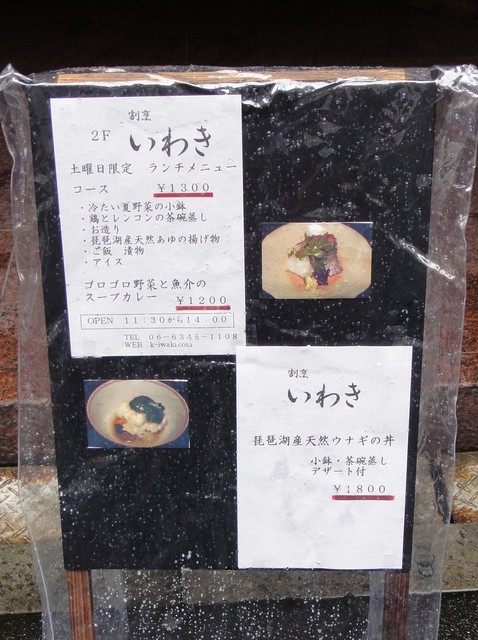 割烹
2F いわき
土曜日限定 ランチメニュー
コース ￥1300
・冷たい夏野菜の小鉢
・鶏とレンコンの茶碗蒸し
・お造り
・琵琶湖産天然あゆの揚げ物
・ご飯 漬物
・アイス
ゴロゴロ野菜と魚介の
スープカレー ￥1200
OPEN 11:30から14:00
TEL 06-6345-1108
WEB k-iwaki.com
割烹
いわき
琵琶湖産天然ウナギの丼
小鉢・茶碗蒸し
デザート付
￥1800